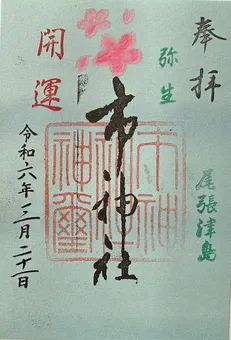 奉拝
弥生
尾張津島
市神社
市神社神璽
開運
令和六年三月二十一日